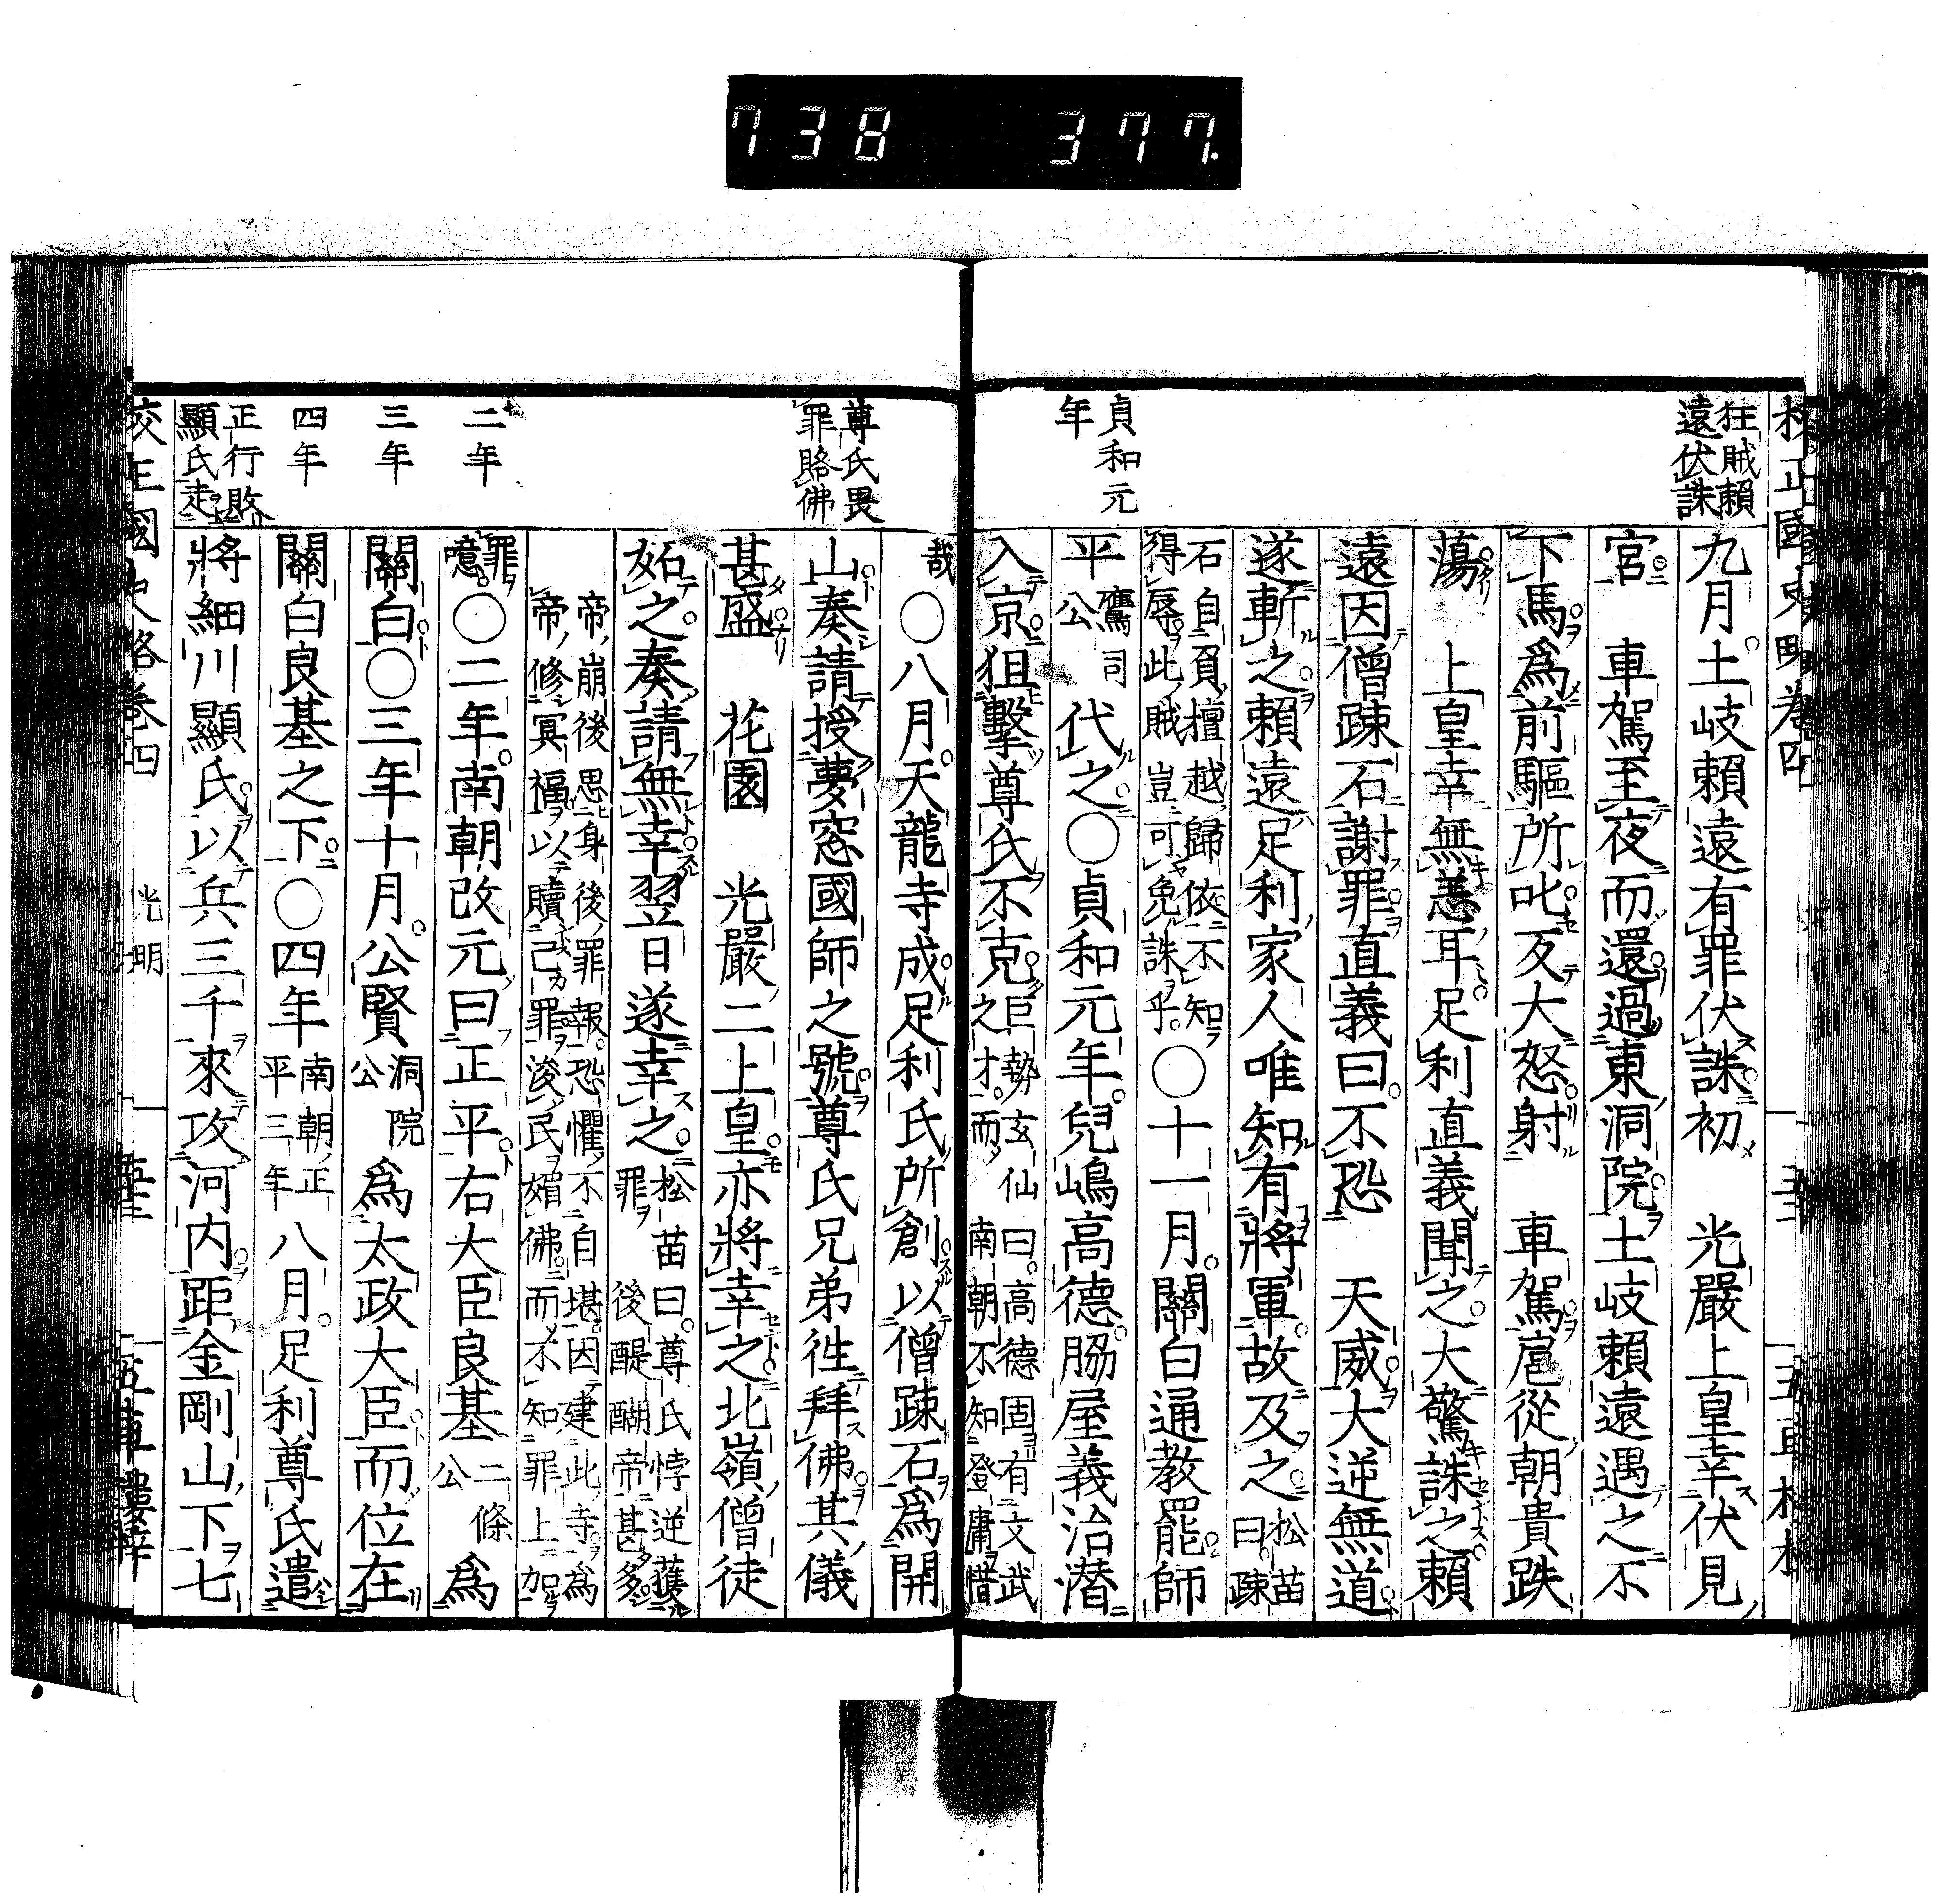 738 377.
狂賊賴
遠伏誅
九月土岐賴遠有罪伏誅初 光嚴上皇幸伏見
宮 車駕至夜而還過東洞院土岐賴遠遇之不
下馬爲前驅所叱反大怒射 車駕扈從朝貴跌
蕩 上皇幸無恙耳足利直義聞之大驚誅之賴
遠因僧踈石謝罪直義曰不恐 天威大逆無道
遂斬之賴遠足利家人唯知有將軍故及之松苗曰踈
石自負檀越歸依不知
得辱此賊豈可免誅乎○十一月關白通教罷師
貞和元
年
平鷹司公代之○貞和元年兒嶋高德脇屋義治潛
入京狙擊尊氏不克巨勢玄仙曰高德固有文武之才而南朝不知登庸惜
哉○八月天龍寺成足利氏所創以僧踈石爲開
尊氏畏
罪賂佛
山奏請授夢窓國師之號尊氏兄弟往拜佛其儀
甚盛 花園 光嚴二上皇亦將幸之北嶺僧徒
妬之奏請無幸翌日遂幸之松苗曰尊氏悖逆獲罪後醍醐帝甚多
帝崩後思身後罪報恐懼不自堪因建此寺爲
帝修冥福以贖己罪浚民媚佛而不知罪上加
二年
罪噫○二年南朝改元曰正平右大臣良基二條公爲
三年
關白○三年十月公賢洞院公爲太政大臣而位在
四年
關白良基之下○四年南朝正平三年八月足利尊氏遣
正行敗
顯氏走
將細川顯氏以兵三千來攻河内距金剛山下七
校正國史略卷四 光明 五車樓梓